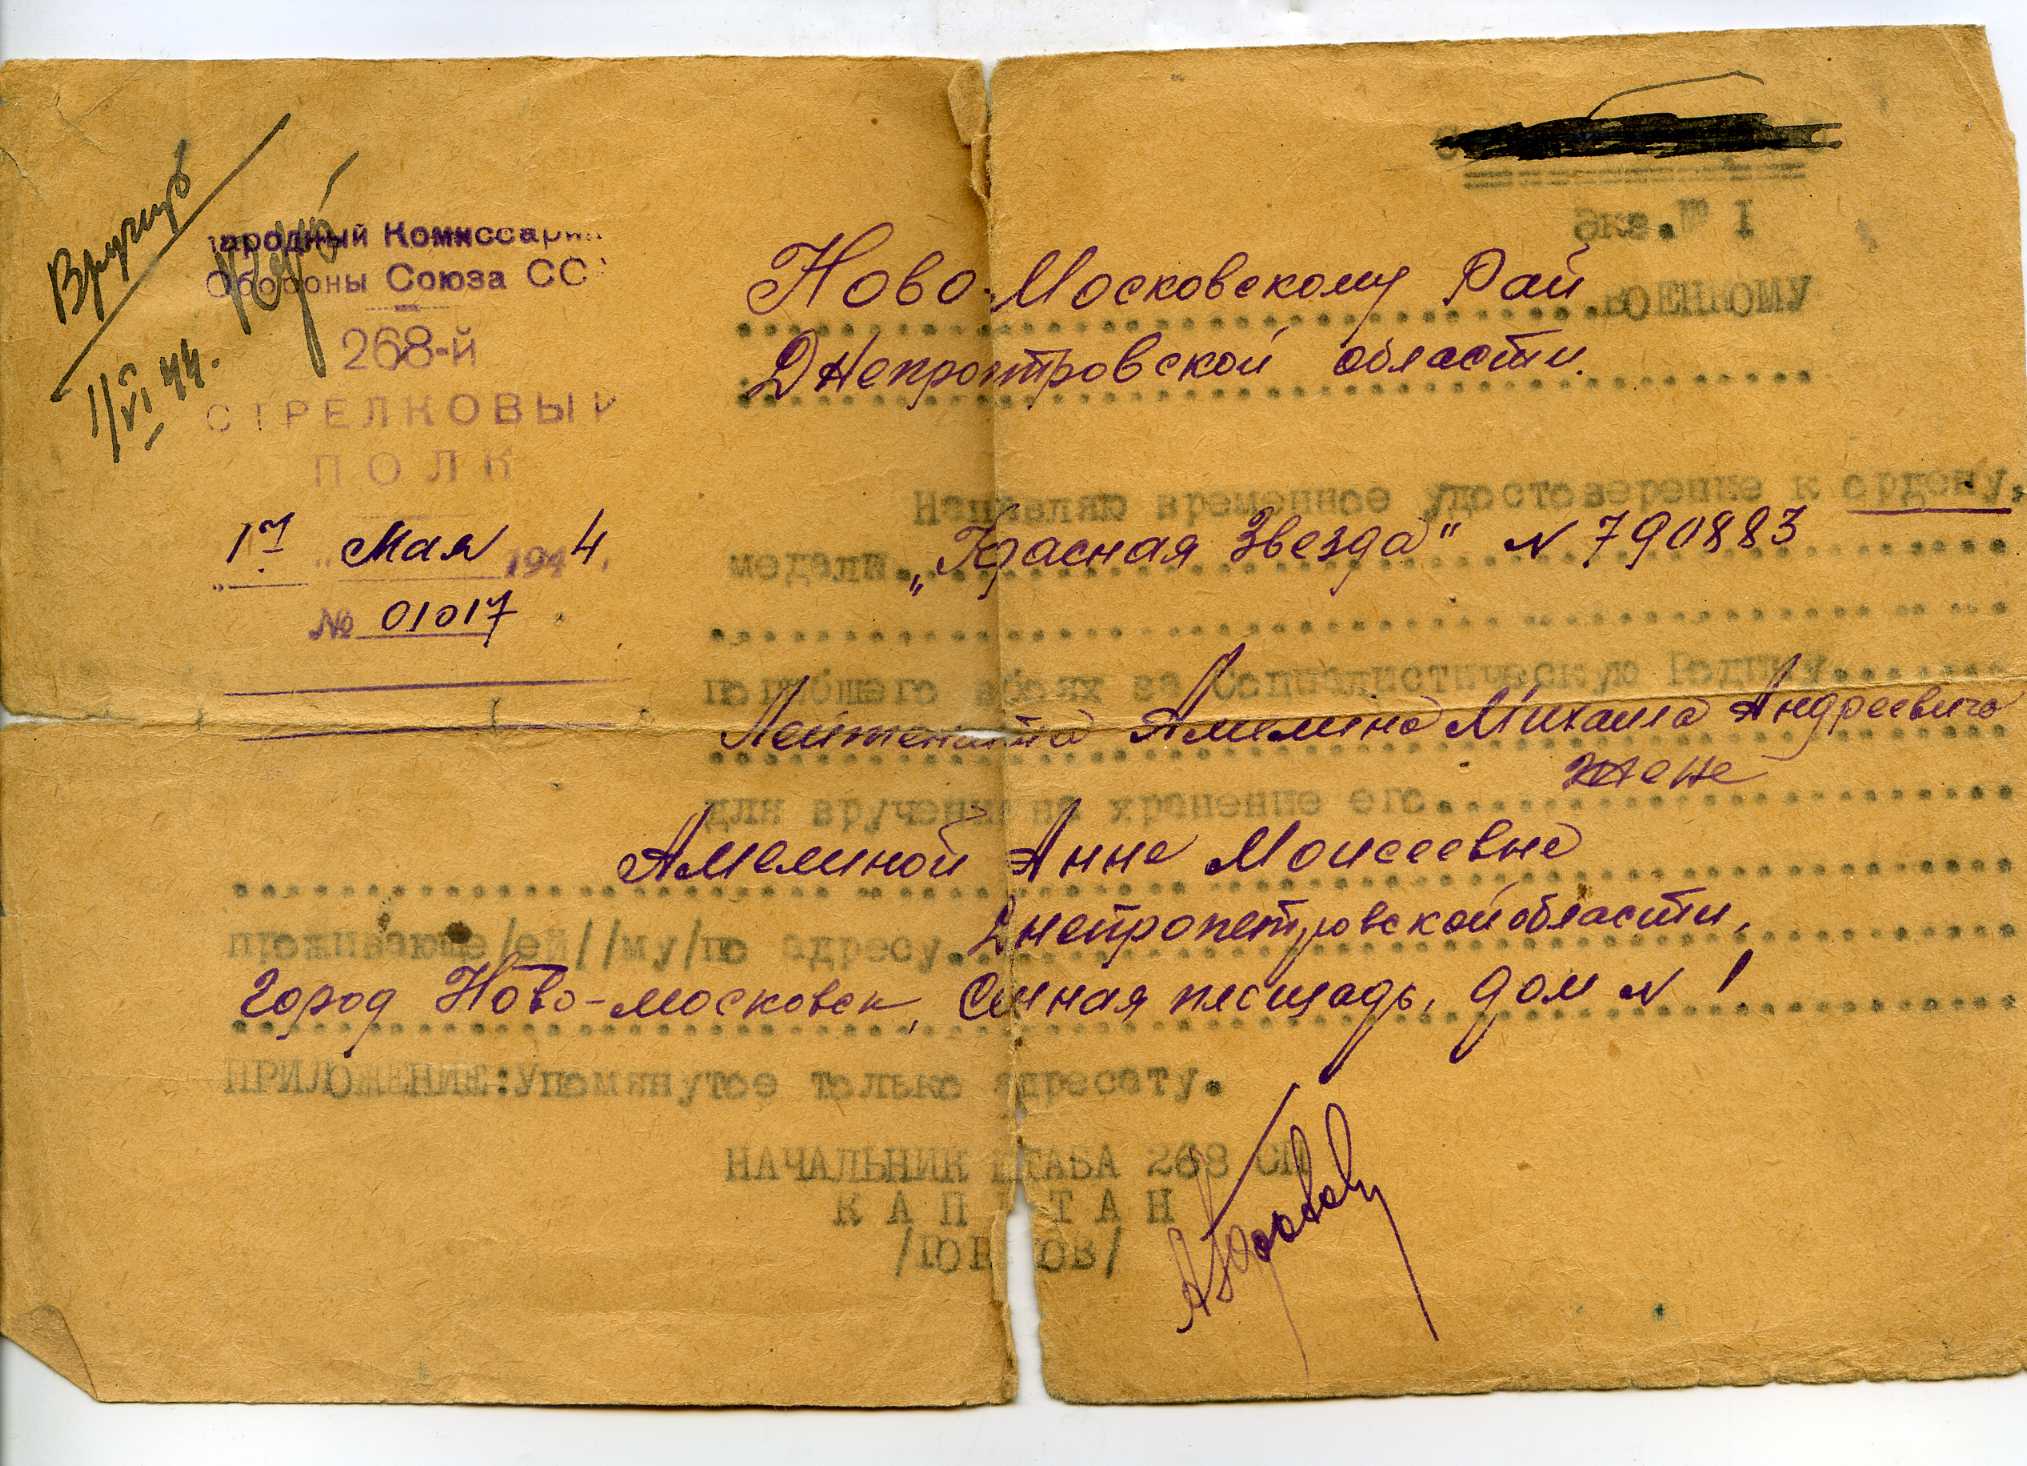 Вручить
1/VI 44.
ародный Комиссари
Обороны Союза СС
268-й
СТРЕЛКОВЫЙ
ПОЛК
"17" Мая 1944.
№ 01017
Экз.№ I
Ново-Московскому Рай ВОЕНКОМУ
Днепроптровской области.
Направляю временное удостоверение к ордену,
медали "Красная Звезда" N 790883
погибшего вбоях за Социалистическую Родину
Лейтенанта Амелина Михаила Андреевича
для вручения на хранение его жене
Амелиной Анне Моисеевне
проживающе/ей//му/по адресу Днепропетровской области,
город Ново-московск, Сенная площадь, дом N 1
ПРИЛОЖЕНИЕ:Упомянутое только адресату.
НАЧАЛЬНИК ШТАБА 268 СП
КАПИТАН